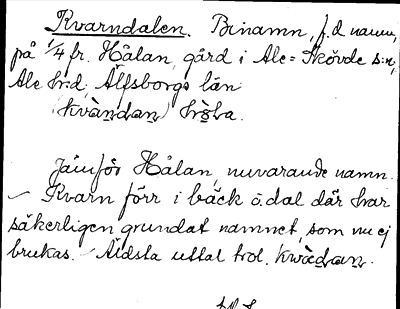 Kvarndalen. Binamn, f.d namn,
på 1/4 fr. Hålan, gård i Ale=Skövde s:n,
Ale hr:d, Älfsborgs län
(kvàṇdaṇ)
Jämför Hålan, nuvarande namn.
– Kvarn förr i bäck o. dal där har
säkerligen grundat namnet, som nu ej
brukas. – Äldsta uttal trol. kwàḍaṇ.